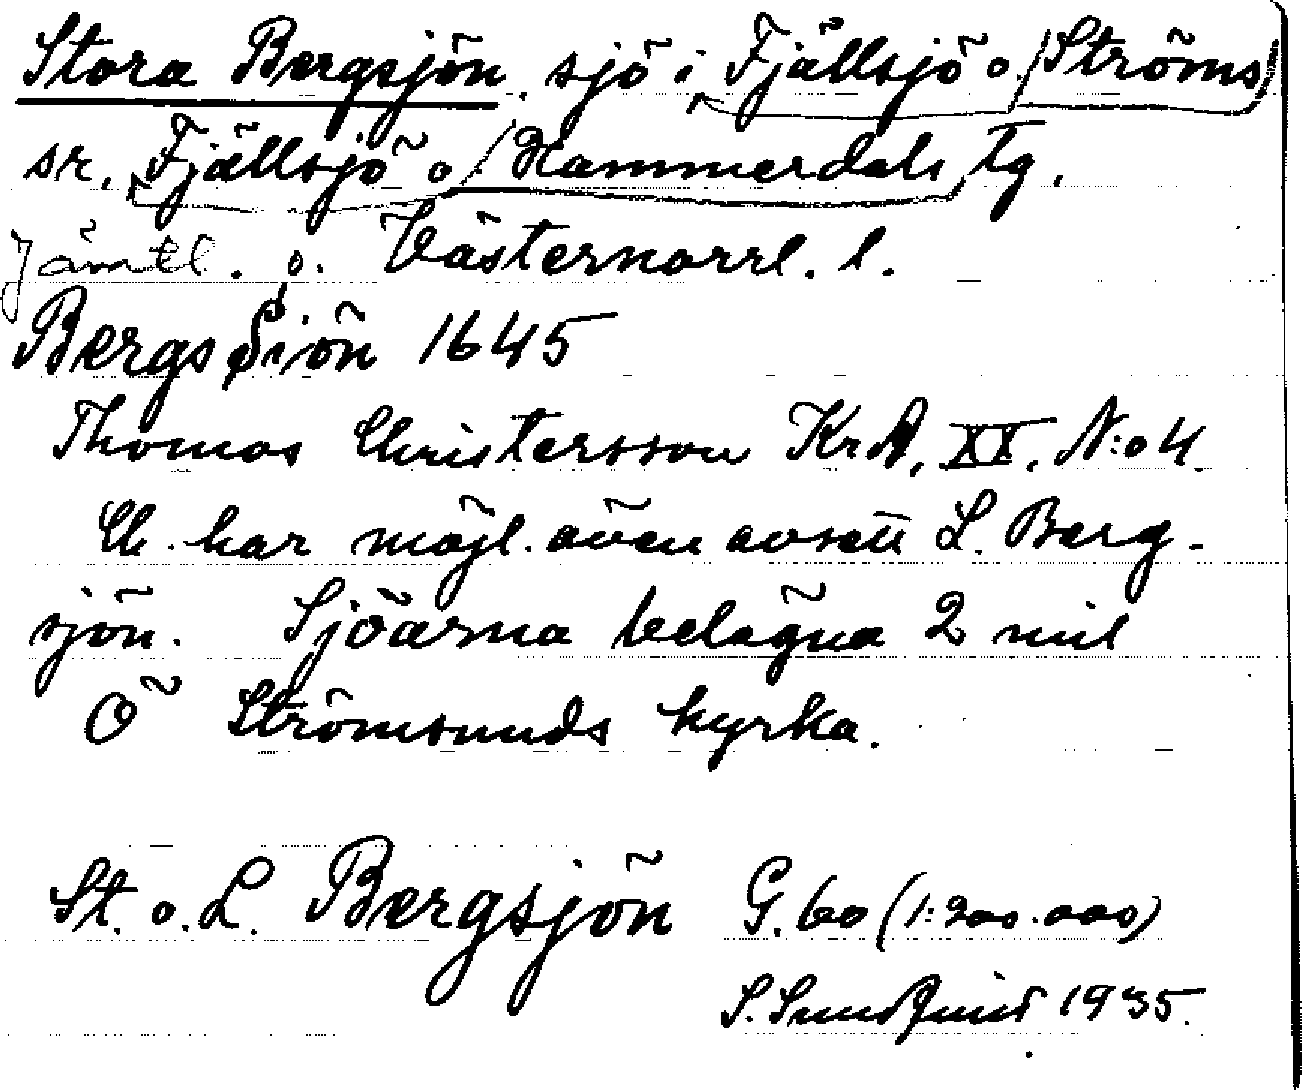 Stora Bergsjön, sjö i Fjällsjö o. Ströms
sr, Fjällsjö o Hammerdals tg.
Jämtl. o. Västernorrl. l.
Bergs Siön 1645
Thomas Christersson KrA, XX, N:o 4.
Ch. har möjl. även avsett L. Berg-
sjön. Sjöarna belägna 2 mil
Ö Strömsunds kyrka.
St. o. L. Bergsjön G. 60 (1:200.000)
S. Sundquist 1935.